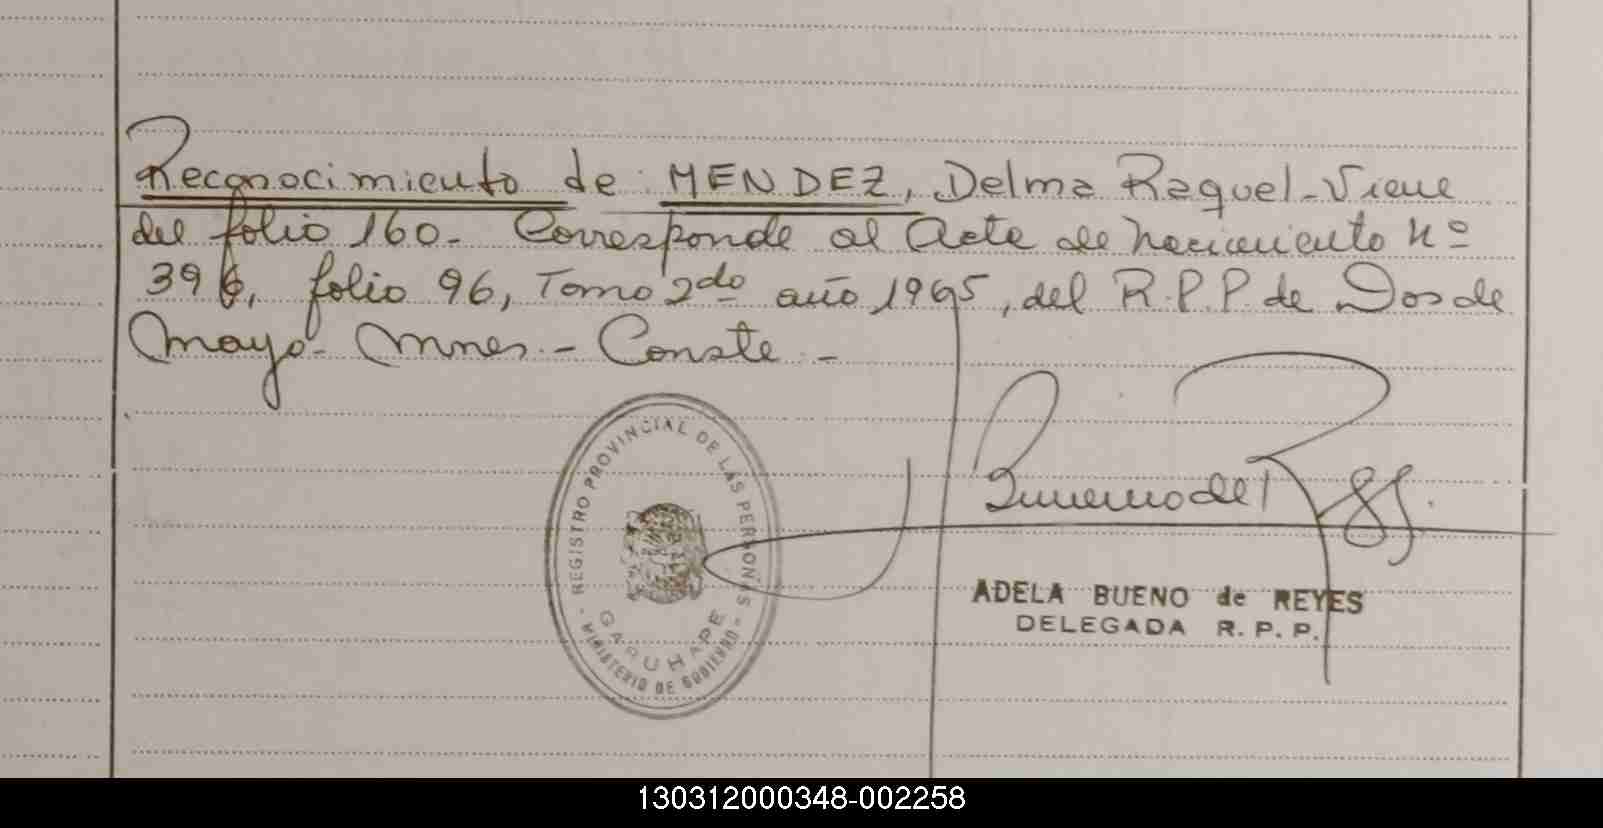 Reconocimiento de MENDEZ, Delma Raquel - Viene
del folio 160 - Corresponde al Acta de nacimiento Nº
396, folio 96, Tomo 2do año 1965, del R.P.P. de Dos de
Mayo - Mnes. - Conste. -
REGISTRO PROVINCIAL DE LAS PERSONAS
GARUHAPE
MINISTERIO DE GOBIERNO
ADELA BUENO de REYES
DELEGADA R. P. P.
130312000348-002258